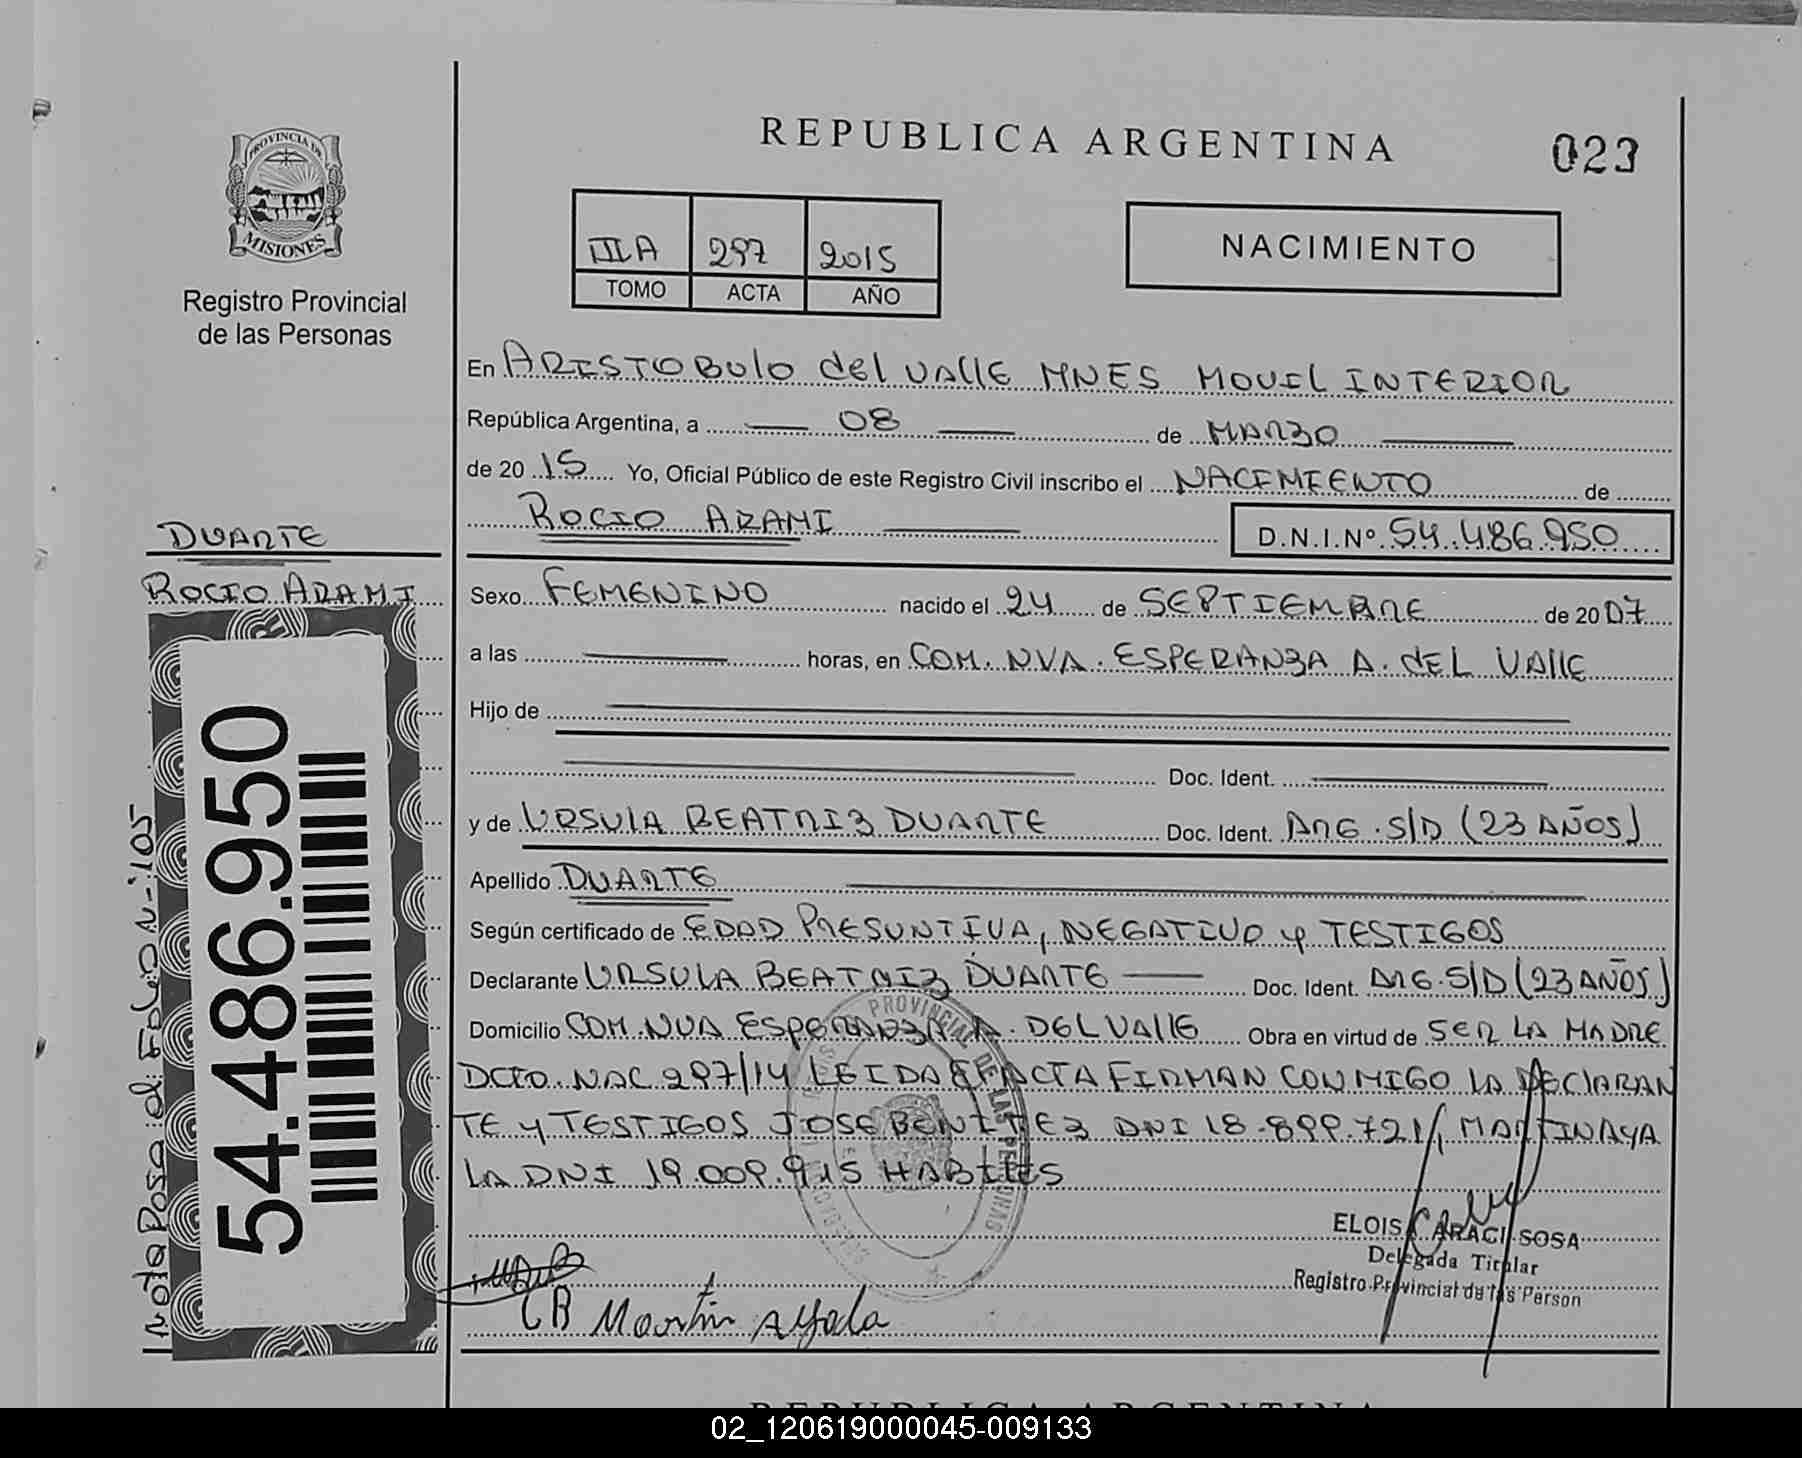 REPUBLICA ARGENTINA
023
PROVINCIA DE
MISIONES
Registro Provincial
de las Personas
IIIA 297 2015
TOMO ACTA AÑO
NACIMIENTO
En ARISTOBULO del VAllE MNES MOVIL INTERIOR
República Argentina, a 08 de MARZO
de 20 15 Yo, Oficial Público de este Registro Civil inscribo el NACIMIENTO de
ROCIO ARAMI D.N.I.Nº 54.486.950
DUARTE
ROCIO ARAMI
Sexo FEMENINO nacido el 24 de SEPTIEMBRE de 2007
a las horas, en COM. NVA. ESPERANZA A. dEL VAllE
Hijo de
Doc. Ident.
y de URSULA BEATRIZ DUARTE Doc. Ident. ARG. S/D (23 AÑOS)
Apellido DUARTE
Según certificado de EDAD PRESUNTIVA, NEGATIVO y TESTIGOS
Declarante URSULA BEATRIZ DUARTE Doc. Ident. ARG. S/D (23 AÑOS)
Domicilio COM. NVA ESPERANZA A. DEL VAllE Obra en virtud de SER LA MADRE
DCTO. NAC 297/14 LEIDA EL ACTA FIRMAN CONMIGO LA DEClARAN
TE y TESTIGOS JOSE BENITEZ DNI 18.899.721/, MARTIN AYA
LA DNI 19.009.915 HABILES
54.486.950
Nota Posa al Folio N-'105
PROVINCIAL DE LAS PERSONAS
ELOISA CARACI SOSA
Delegada Titular
Registro Provincial de las Person
Martin Ayala
REPUBLICA ARGENTINA
02_120619000045-009133